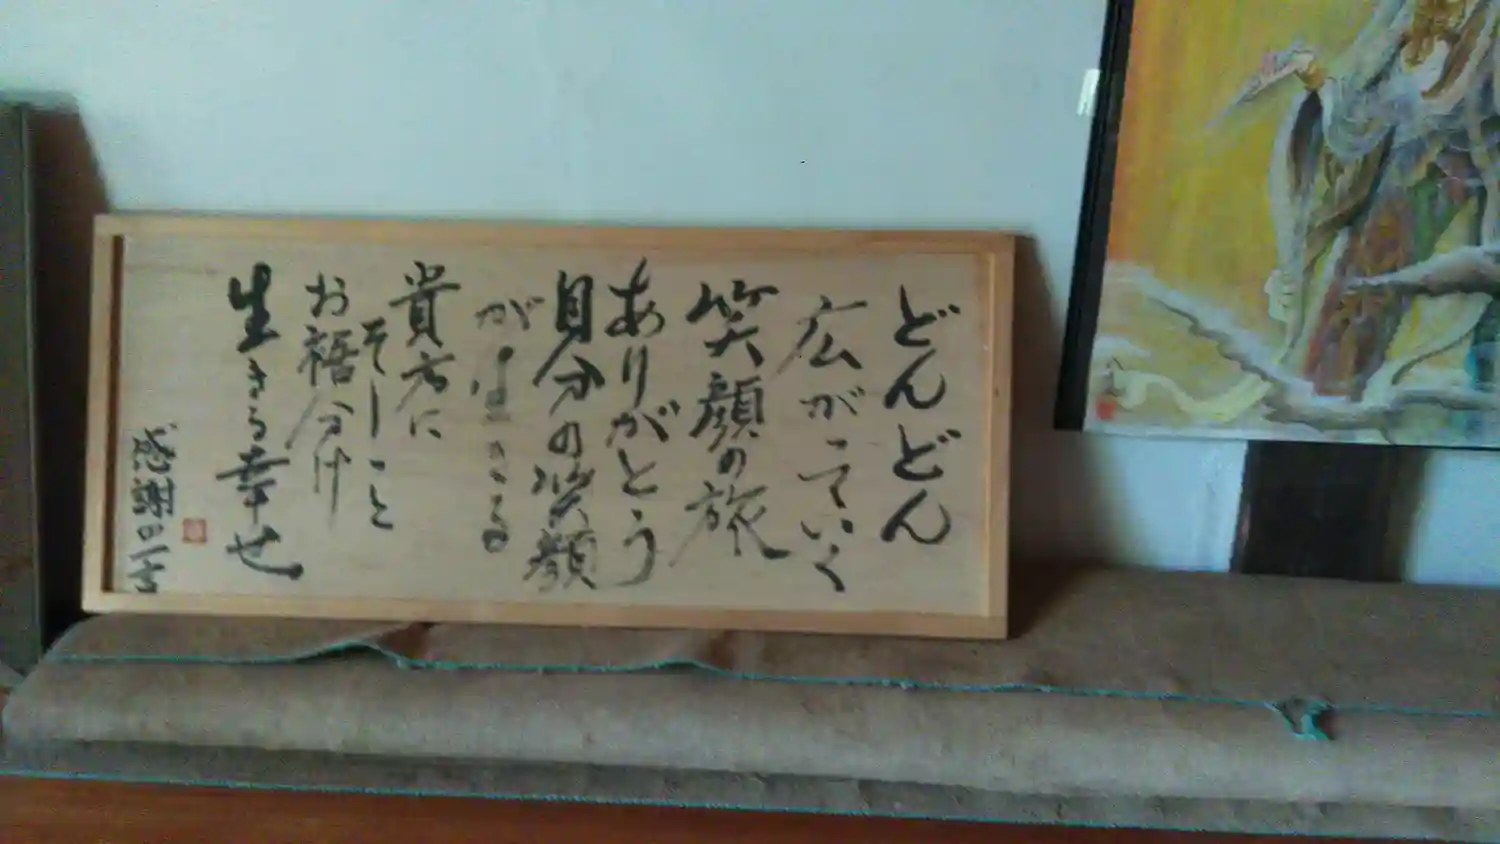 どんどん
広がっていく
笑顔の旅
ありがとう
自分の笑顔
が
貴方に
そーっと
お福分け
生きる幸せ
感謝